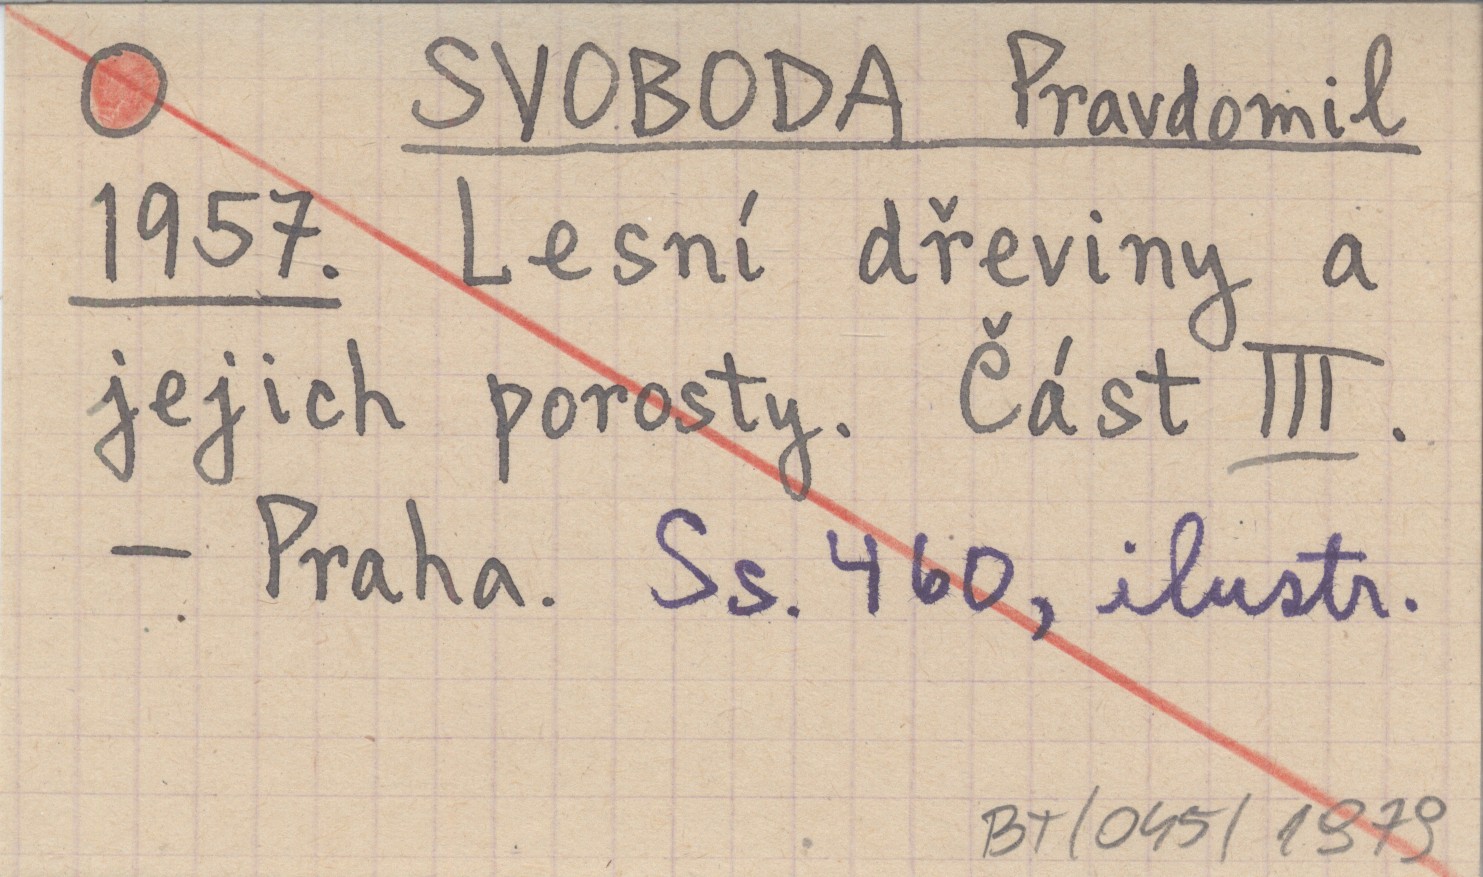 SVOBODA Pravdomil
1957. Lesní dřeviny a
jejich porosty. Část III.
— Praha. Ss. 460, ilustr.
BT/045/1979